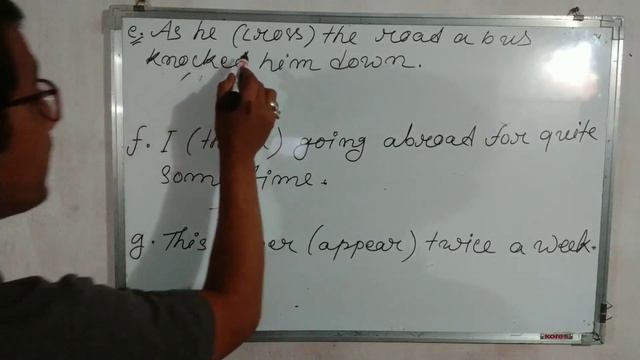 e. As he (cross) the road a bus
knocked him down.
f. I () going abroad for quite
some time.
g. This (appear) twice a week.
kores